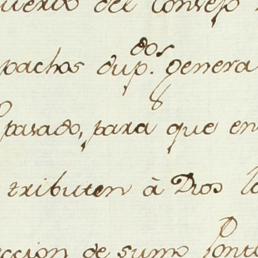 del Consejo
pachos dup.dos genera
pasado, para que en
tributen à Dios
eccion de sumo Pont